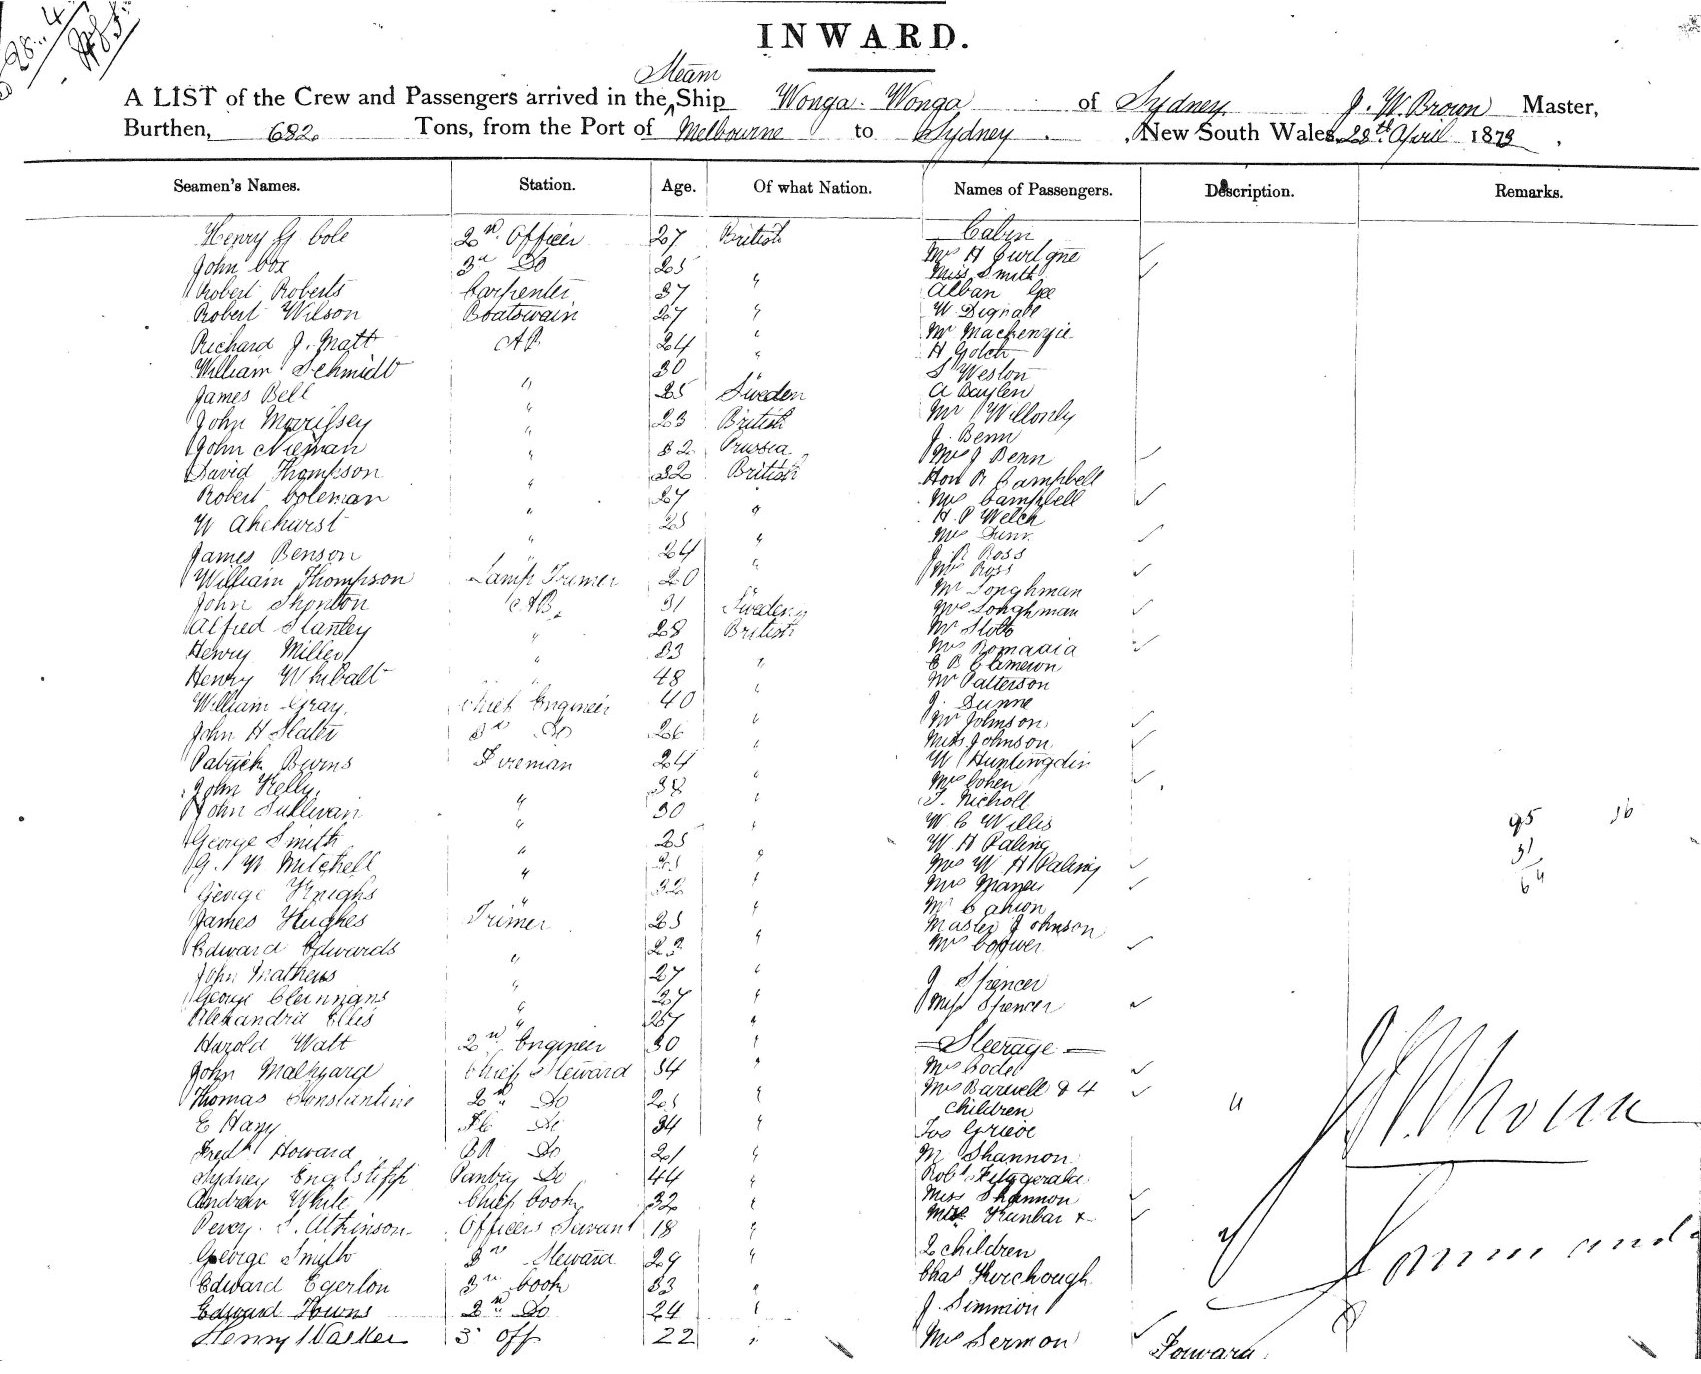 28. 4
INWARD.
Steam
A LIST of the Crew and Passengers arrived in the Ship Wonga Wonga of Sydney J. W. Brown Master,
Burthen, 682 Tons, from the Port of Melbourne to Sydney New South Wales 28th April 1873
Seamen's Names. Station. Age. Of what Nation. Names of Passengers. Description. Remarks.
Henry G Cole 2nd Officer 27 British
John Cox 3rd Do 25
Robert Roberts Carpenter 37 "
Robert Wilson Boatswain 27 "
Richard J. Matt AB 24 "
William Schmidt 30 "
James Bell " 25 Sweden
John Morrissey " 23 British
John Nieman " 32 Prussia
David Thompson " 32 British
Robert Coleman " 27
W Akehurst " 25 "
James Benson " 24 "
William Thompson Lamp Trimer 20 "
John Shonton AB 31 Sweden
Alfred Stanley " 28 British
Henry Miller " 33
Henry Whibalt " 48 "
William Gray Chief Engineer 40 "
John H Slater 3rd Do 26 "
Patrick Burns Fireman 24 "
John Kelly 38 "
John Sullivan " 30 "
George Smith " 25 "
G. W Mitchell " "
George Knighs " 32 "
James Hughes Trimer 25 "
Edward Edwards 23 "
John Mathews " 27 "
George Clennans " 27 "
Alexandria Ellis " 27 "
Harold Watt 2nd Engineer 30 "
John Chief Steward 34 "
Thomas Constantine 2nd Do "
E Hany Do 34 "
Fredk Howard BR Do 21 "
Sydney Pantry Do 44 "
Andrew White Chief Cook 32 "
Percy. S. Atkinson Officers Servant 18 "
George Smith 3rd Steward 29 "
Edward Egerton 3rd Cook 33 "
Edward Towns 2nd Do 24 "
Henry Walker 3 Off 22 "
Cabin
Mrs H
Miss Smith
Alban Gee
W Dignam
Mr Mackenzie
H Gotch
S Weston
A Baylen
Mr Willonly
J. Benn
Mrs J Benn
Hon R Campbell
Mrs Campbell
H. P Welch
Mrs Dunn
J R Ross
Mrs Ross
Mr Loughman
Mrs Loughman
Mr Slott
Mrs
E B Cameron
Mr Patterson
J. Dunne
Mrs Johnson
Miss Johnson
W Huntingdin
Mrs Cohen
T. Nicholl
W C Willis
W. H Paling
Mrs W H Paling
Mrs
Mr
Master Johnson
Mrs Cowper
J Spencer
Miss Spencer
Steerage
Mrs
Mrs Barwell & 4
children
Jos Grieve
M Shannon
Robt Fitzgerald
Miss Shannon
Mrs Dunbar &
2 children
Chas
J. Simmion
Mrs Sermon
Forward
95
31
64
J W Brown
Commander